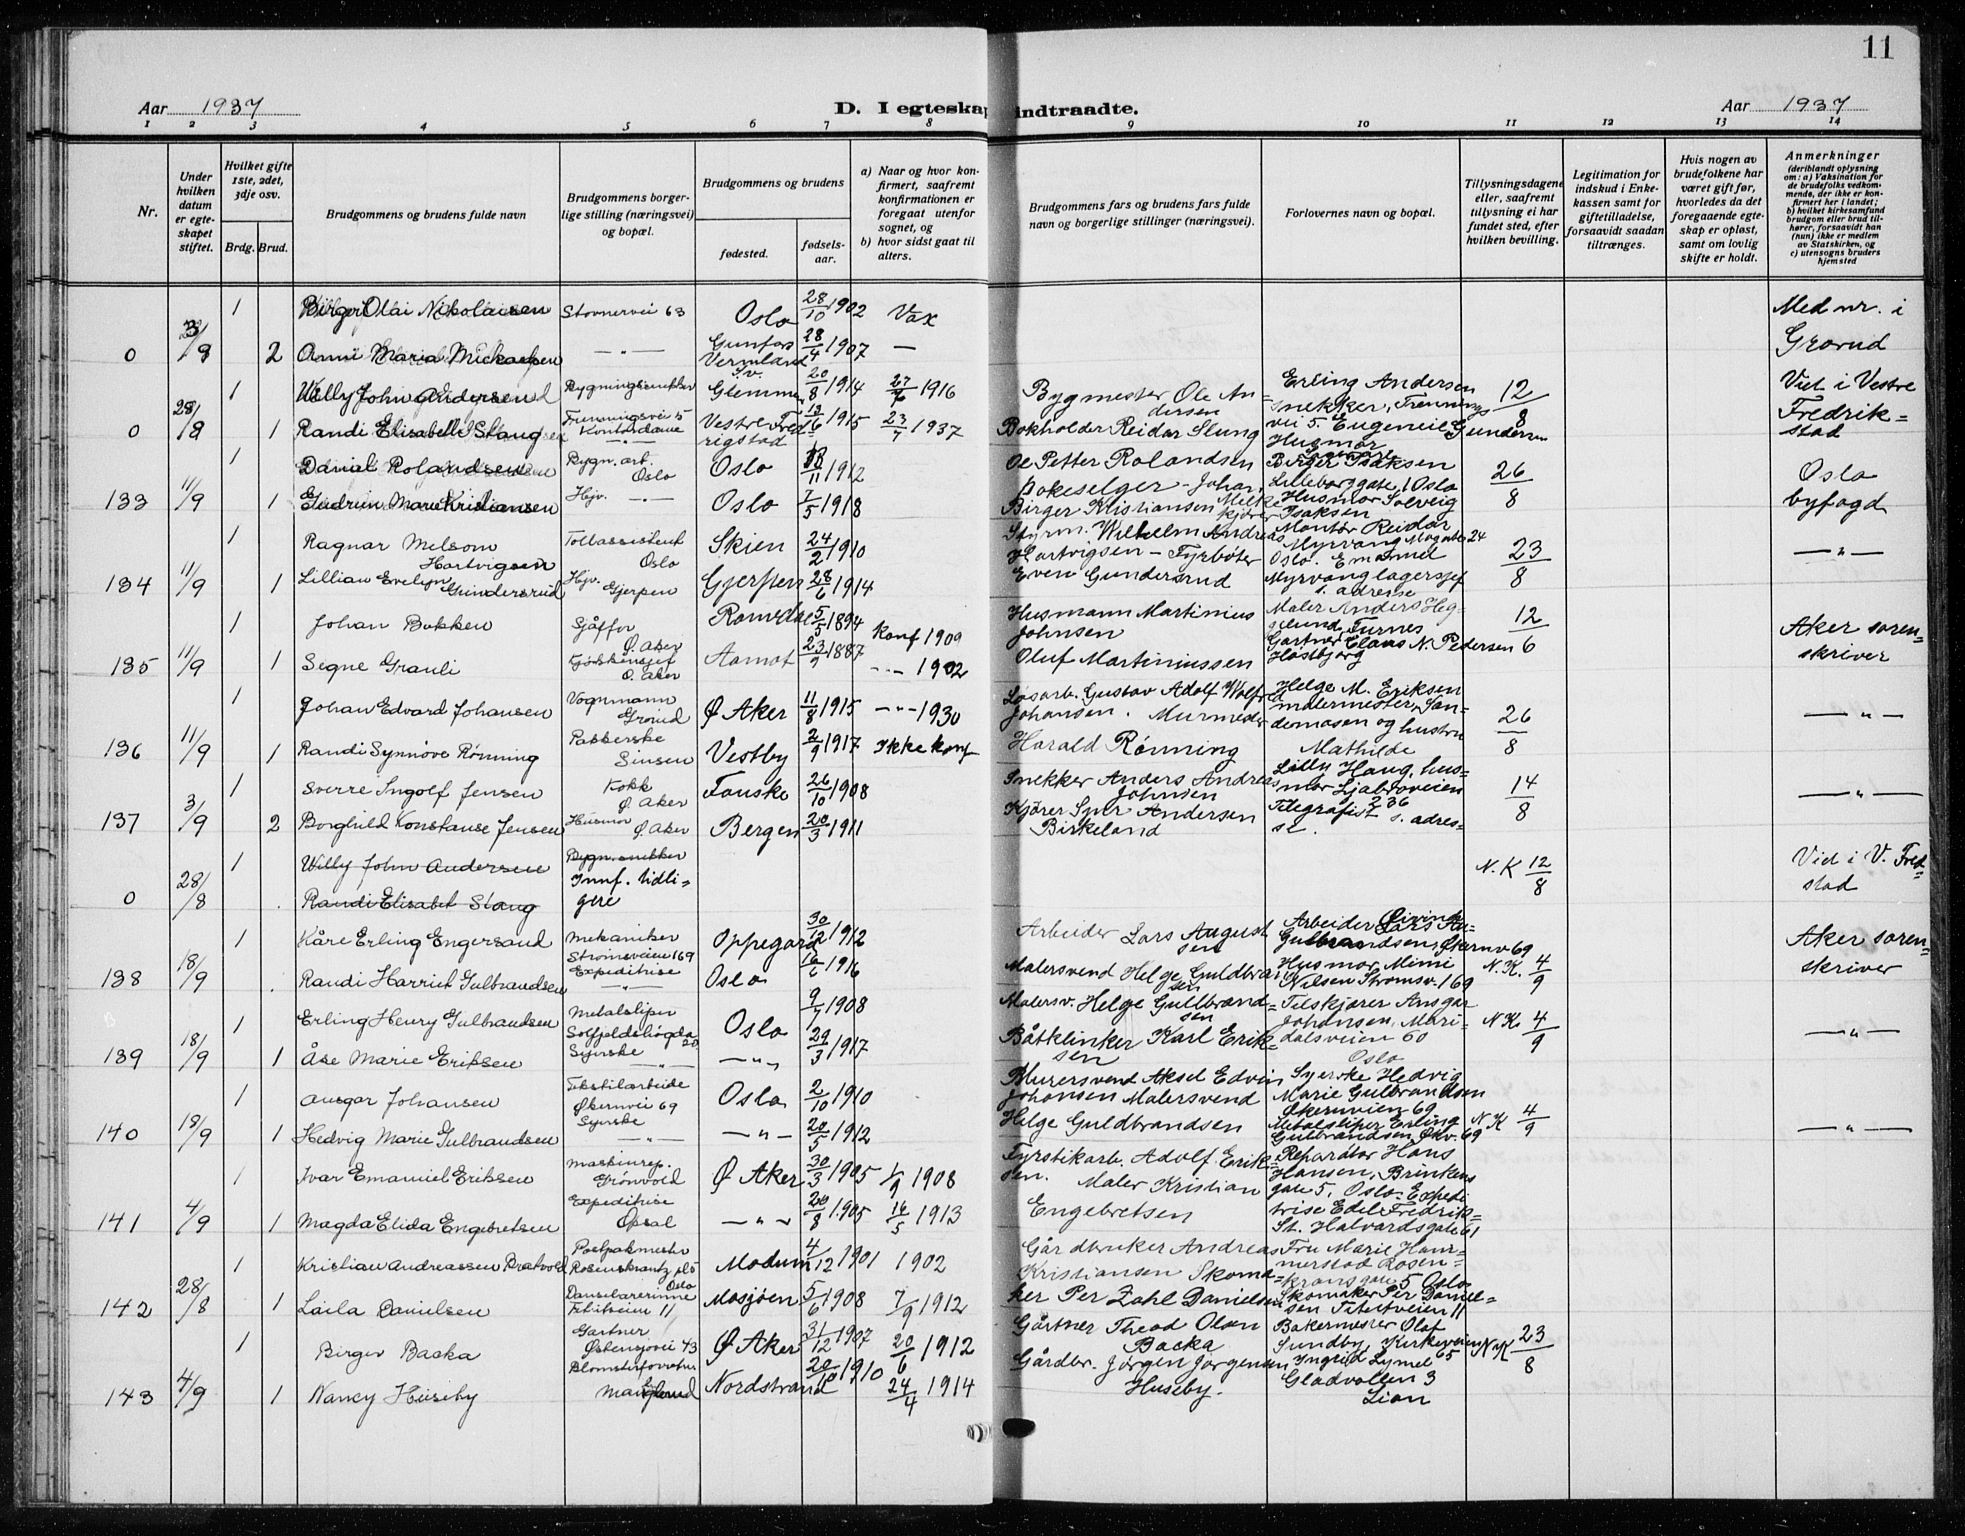 11
Aar 1937
D. I egteskap indtraadte.
Aar 1937
1 2 3 4 5 6 7 8 9 10 11 12 13 14
Nr.
Under hvilken datum er egteskapet stiftet.
Hvilket gifte 1ste, 2det, 3dje osv.
Brdg. Brud.
Brudgommens og brudens fulde navn
Brudgommens borgerlige stilling (næringsvei) og bopæl.
Brudgommens og brudens
fødested. fødselsaar.
a) Naar og hvor konfirmert, saafremt konfirmationen er foregaat utenfor sognet, og
b) hvor sidst gaat til alters.
Brudgommens fars og brudens fars fulde navn og borgerlige stillinger (næringsvei).
Forlovernes navn og bopæl.
Tillysningsdagene eller, saafremt tillysning ei har fundet sted, efter hvilken bevilling.
Legitimation for indskud i Enkekassen samt for giftetilladelse, forsaavidt saadan tiltrænges.
Hvis nogen av brudefolkene har været gift før, hvorledes da det foregaaende egteskap er opløst, samt om lovlig skifte er holdt.
Anmerkninger
(deriblandt oplysning om: a) Vaksination for de brudefolks vedkommende, der ikke er konfirmert her i landet; b) hvilket kirkesamfund brudgom eller brud tilhører, forsaavidt han (hun) ikke er medlem av Statskirken, og c) utensogns bruders hjemsted
1 Birger Olai Nikolaisen Stovnervei 63 Oslo 28/10 1902 Vax Med nr. i
0 3/9 2 Anni Maria Mickaelsen —"— Gunfors Vermland Sv. 28/4 1907 — Grorud
1 Willy John Andersen Bygningssnekker Glemmen 20/8 1914 1916 Bygmester Ole Andersen Erling Andersen snekker, 12/8 Viet i Vestre
0 28/8 1 Randi Elisabeth Slang Kontordame —"— Vestre Fredrigstad 1915 1937 Bokholder Reidar Slang vei 5. Fredrikstad
1 Daniel Rolandsen Bygn. arb. Oslo Oslo 11 1912 Ole Petter Rolandsen Birger Isaksen Lilleborggate 1 Oslo 26/8 Oslo
133 11/9 1 Gudrun Marie Kristiansen Hjv. —"— Oslo 7/5 1918 Birger Kristiansen Husmor Solveig Isaksen byfogd
1 Ragnar Melsom Hartvigsen Tollassistent Oslo Skien 24/2 1910 Styrm. Wilhelm Andreas Hartvigsen – Fyrbøter Montør Reidar Myrvang 23/8 —"—
134 11/9 1 Lillian Evelyn Gundersrud Hjv. Gjerpen Gjerpen 28/6 1914 Even Gundersrud Oslo. Emanuel Myrvang lagersjef s. adresse
1 Johan Bakken Sjåffør Ø. Aker Romedal 5/5 1894 konf 1909 Husmann Martinius Johnsen Maler Anders 12/6 Aker soren-
135 11/9 1 Segne Granli Ø. Aker Aamot 23/9 1887 –"– 1902 Oluf Martiniussen Gartner Claus N. Pedersen skriver
1 Johan Edvard Johansen Vognmann Grorud Ø Aker 11/8 1915 –"– 1930 Løsarb. Gustav Adolf Johansen. Murmester Helge M. Eriksen malermester, 26/8 —"—
136 11/9 1 Randi Synnøve Rønning Pakkerske Sinsen Vestby 2/9 1917 Ikke konf Harald Rønning og hustru Mathilde
1 Sverre Ingolf Jensen Kokk Ø. Aker Fauske 26/10 1908 Snekker Anders Andreas Johnsen Lilly Haug, husmor Ljabroveien 236 14/8 —"—
137 3/9 2 Borghild Konstanse Jensen Husmor Ø. Aker Bergen 20/3 1911 Kjører Andersen Birkeland Telegrafist s. adresse.
1 Willy John Andersen Bygn. snekker N.K 12/8 Vid i V. Fred-
0 28/8 Randi Elisabet Slang Innf. tidligere stad
1 Kåre Erling Engersand Mekaniker Strømsveien 169 Oppegård 30/12 1912 Arbeider Lars Augustsen Arbeider Øivind Gulbrandsen, Økernv 69 Aker soren-
138 18/9 Randi Harriet Gulbrandsen Expeditrise —"— Oslo 16/6 1916 Malersvend Helge Guldbrandsen Husmor Mimi Nilsen Strømsv. 169 N.K. 4/9 skriver
1 Erling Henry Gulbrandsen Metalsliper Solfjeldshøgda 20 Oslo 9 1908 Malersv. Helge Gullbrandsen Ansgar Johansen, Maridalsveien 60 Oslo N.K. 4/9 —"—
139 18/9 1 Åse Marie Eriksen Syerske —"— —"— 29/3 1917 Båtklinker Karl Eriksen
1 Ansgar Johansen Tekstilarbeide Økernvei 69 Oslo 2/10 1910 Murersvend Aksel Edvin Johansen Malersvend Syerske Hedvig Marie Gulbrandsen Økernveien 69
140 18/9 1 Hedvig Marie Gulbrandsen Syerske —"— —"— 20/5 1912 Helge Guldbrandsen Metalsliper Erling Gulbrandsen, Økv. 69 N.K 4/9 —"—
1 Ivar Emanuel Eriksen Maskinrep. Grønvold Ø Aker 30/3 1905 1/9 1908 Fyrstikarb. Adolf Eriksen. Maler Kristian Reparatør Hans Hansen, Brinkens gate 5, Oslo.
141 4/9 1 Magda Elida Engebretsen Expeditrise Opsal —"— 20/8 1905 16/5 1913 Engebretsen Expeditrise Edel Fredrik- St. Halvardsgate 61
1 Kristian Andreassen Bratvold Postpakmester Rosenkrantz pl 5 Oslo Modum 4/12 1901 1902 Gårdbruker Andreas Kristiansen Skomaker Fru Marie Hammerstad Rosenkransgate 5 Oslo
142 28/8 1 Laila Danielsen Danselærerinne Tietveien 11 Mosjøen 5/6 1908 7/9 1912 Per Zahl Danielsen Skomaker Per Danielsen 11
1 Birger Backa Gartner Østensjøvei 43 Ø Aker 31/12 1907 20/6 1912 Gårtner Theod Olsen Backa Bakermester Olaf Sundby, Kirkeveien 65 NK 23/8
143 4/9 1 Nancy Huseby Manglerud Nordstrand 20/10 1910 24/4 1914 Gårdbr. Jørgen Jørgensen Huseby. Ingrid Lymel Gladvollen 3 Lian